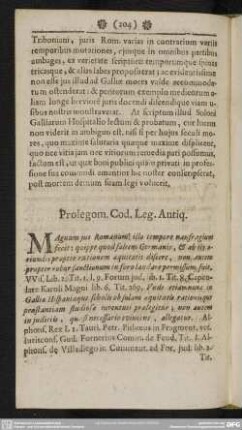 (204)
Tribonium, juris Rom. varias in contrarium variis
temporibus mutationes, ejusque in omnibus paribus
ambages, ex varietate scriptorum temporumque spinas
tricasque, & alios labes proposuerat; ac evidentissime
non esse jus illud ad Galliæ mores valde accommoda-
tum ostenderat; & postremum exemplo
lum longe breviore juris docendi discendique viam u-
sibus nostris monstraverat. At scriptum illud Solon
Galliarum Hospitalio lectum & probatum, cur lucem
non viderit in ambiguo est, nisi si per hujus seculi mo-
res, quo maxime salutaria quæque maxime displicent,
quo nec vitia jam nec vitiorum remedia pati possimus,
factum est, ut quæ boni publici quàm privati in profes-
sione sua commodi amantior hic noster conscripserat,
post mortem demum suam legi voluerit.
Prolegom. Cod. Leg. Antiq.
MAgnum jus Romanum illo tempore naufragium
fecit: quippe quod saltem Germanis, & ab iis o-
riundis propter rationem æquitatis discere, non autem
propter robur sanctionum in foro laudare permissum fuit,
VVis. Lib. 2. Tit. 1. l. 9. Forum jud. lib. 2. Tit. 8. Capitu-
lare Karoli Magni lib. 6. Tit. 269. Unde etiamnunc in
Gallia Hispaniaque scholis ob solam æquitatis rationisque
præstantiam studiose juventuti prælegitur; non autem
in judiciis, quasi necessario retinens, allegatur. Al-
phons. Rex l. 1. Tauri. Petr. Pithœus in Fragment. vet.
Jurisconf. Guil. Fornerius Comm. de Feud. Tit. I. Al-
phons. de Villadiego in Comment. ad For. jud. lib. 2.
Tit.